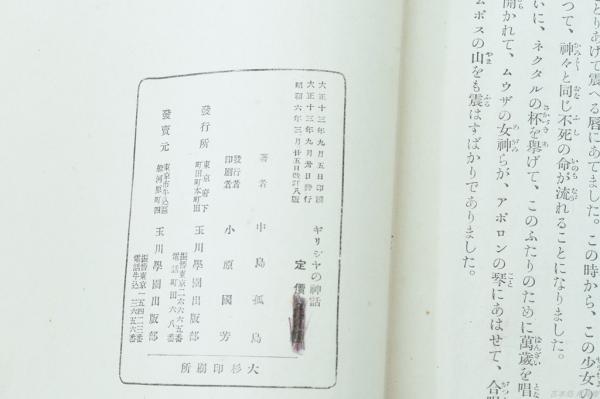 とりあげて震へる唇にあてました。この時から、この少女の
つて、神々と同じ不死の命が流れることになりました。
いに、ネクタルの杯を擧げて、このふたりのために萬歳を唱
開かれて、ムウザの女神らが、アポロンの琴にあはせて、合唱
ムポスの山をも震はすばかりでありました。
ギリシヤの神話
定價
大正十三年九月五日印刷
大正十三年九月廿日發行
昭和六年三月廿五日改訂八版
著者 中島孤島
發行者
印刷者 小原國芳
發行所 東京府下
町田町本町田 玉川學園出版部
振替東京二六六六五番
電話町田六八番
發賣元 東京市牛込區
船河原町四 玉川學園出版部
大杉印刷所